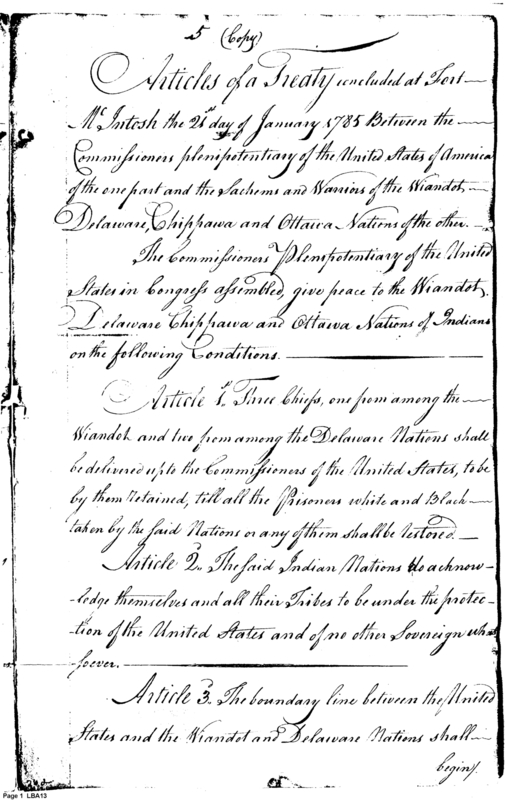 5 (Copy)
Articles of a Treaty concluded at Fort
McIntosh the 21st day of January 1785 Between the
Commissioners plenipotentiary of the United States of America
of the one part and the Sachems and Warriors of the Wiandot,
Delaware, Chippawa and Ottawa Nations of the other.
The Commissioners Plenipotentiary of the United
States in Congress assembled, give peace to the Wiandot,
Delaware Chippawa and Ottawa Nations of Indians
on the following Conditions.
Article 1st. Three Chiefs, one from among the
Wiandot and two from among the Delaware Nations shall
be delivered up to the Commissioners of the United States, to be
by them retained, till all the Prisoners white and Black
taken by the said Nations or any of them shall be restored.
Article 2. The said Indian Nations do acknow-
-ledge themselves and all their Tribes to be under the protec-
-tion of the United States and of no other Sovereign what
soever.
Article 3. The boundary line between the United
States and the Wiandot and Delaware Nations shall
begin
Page 1 LBA13